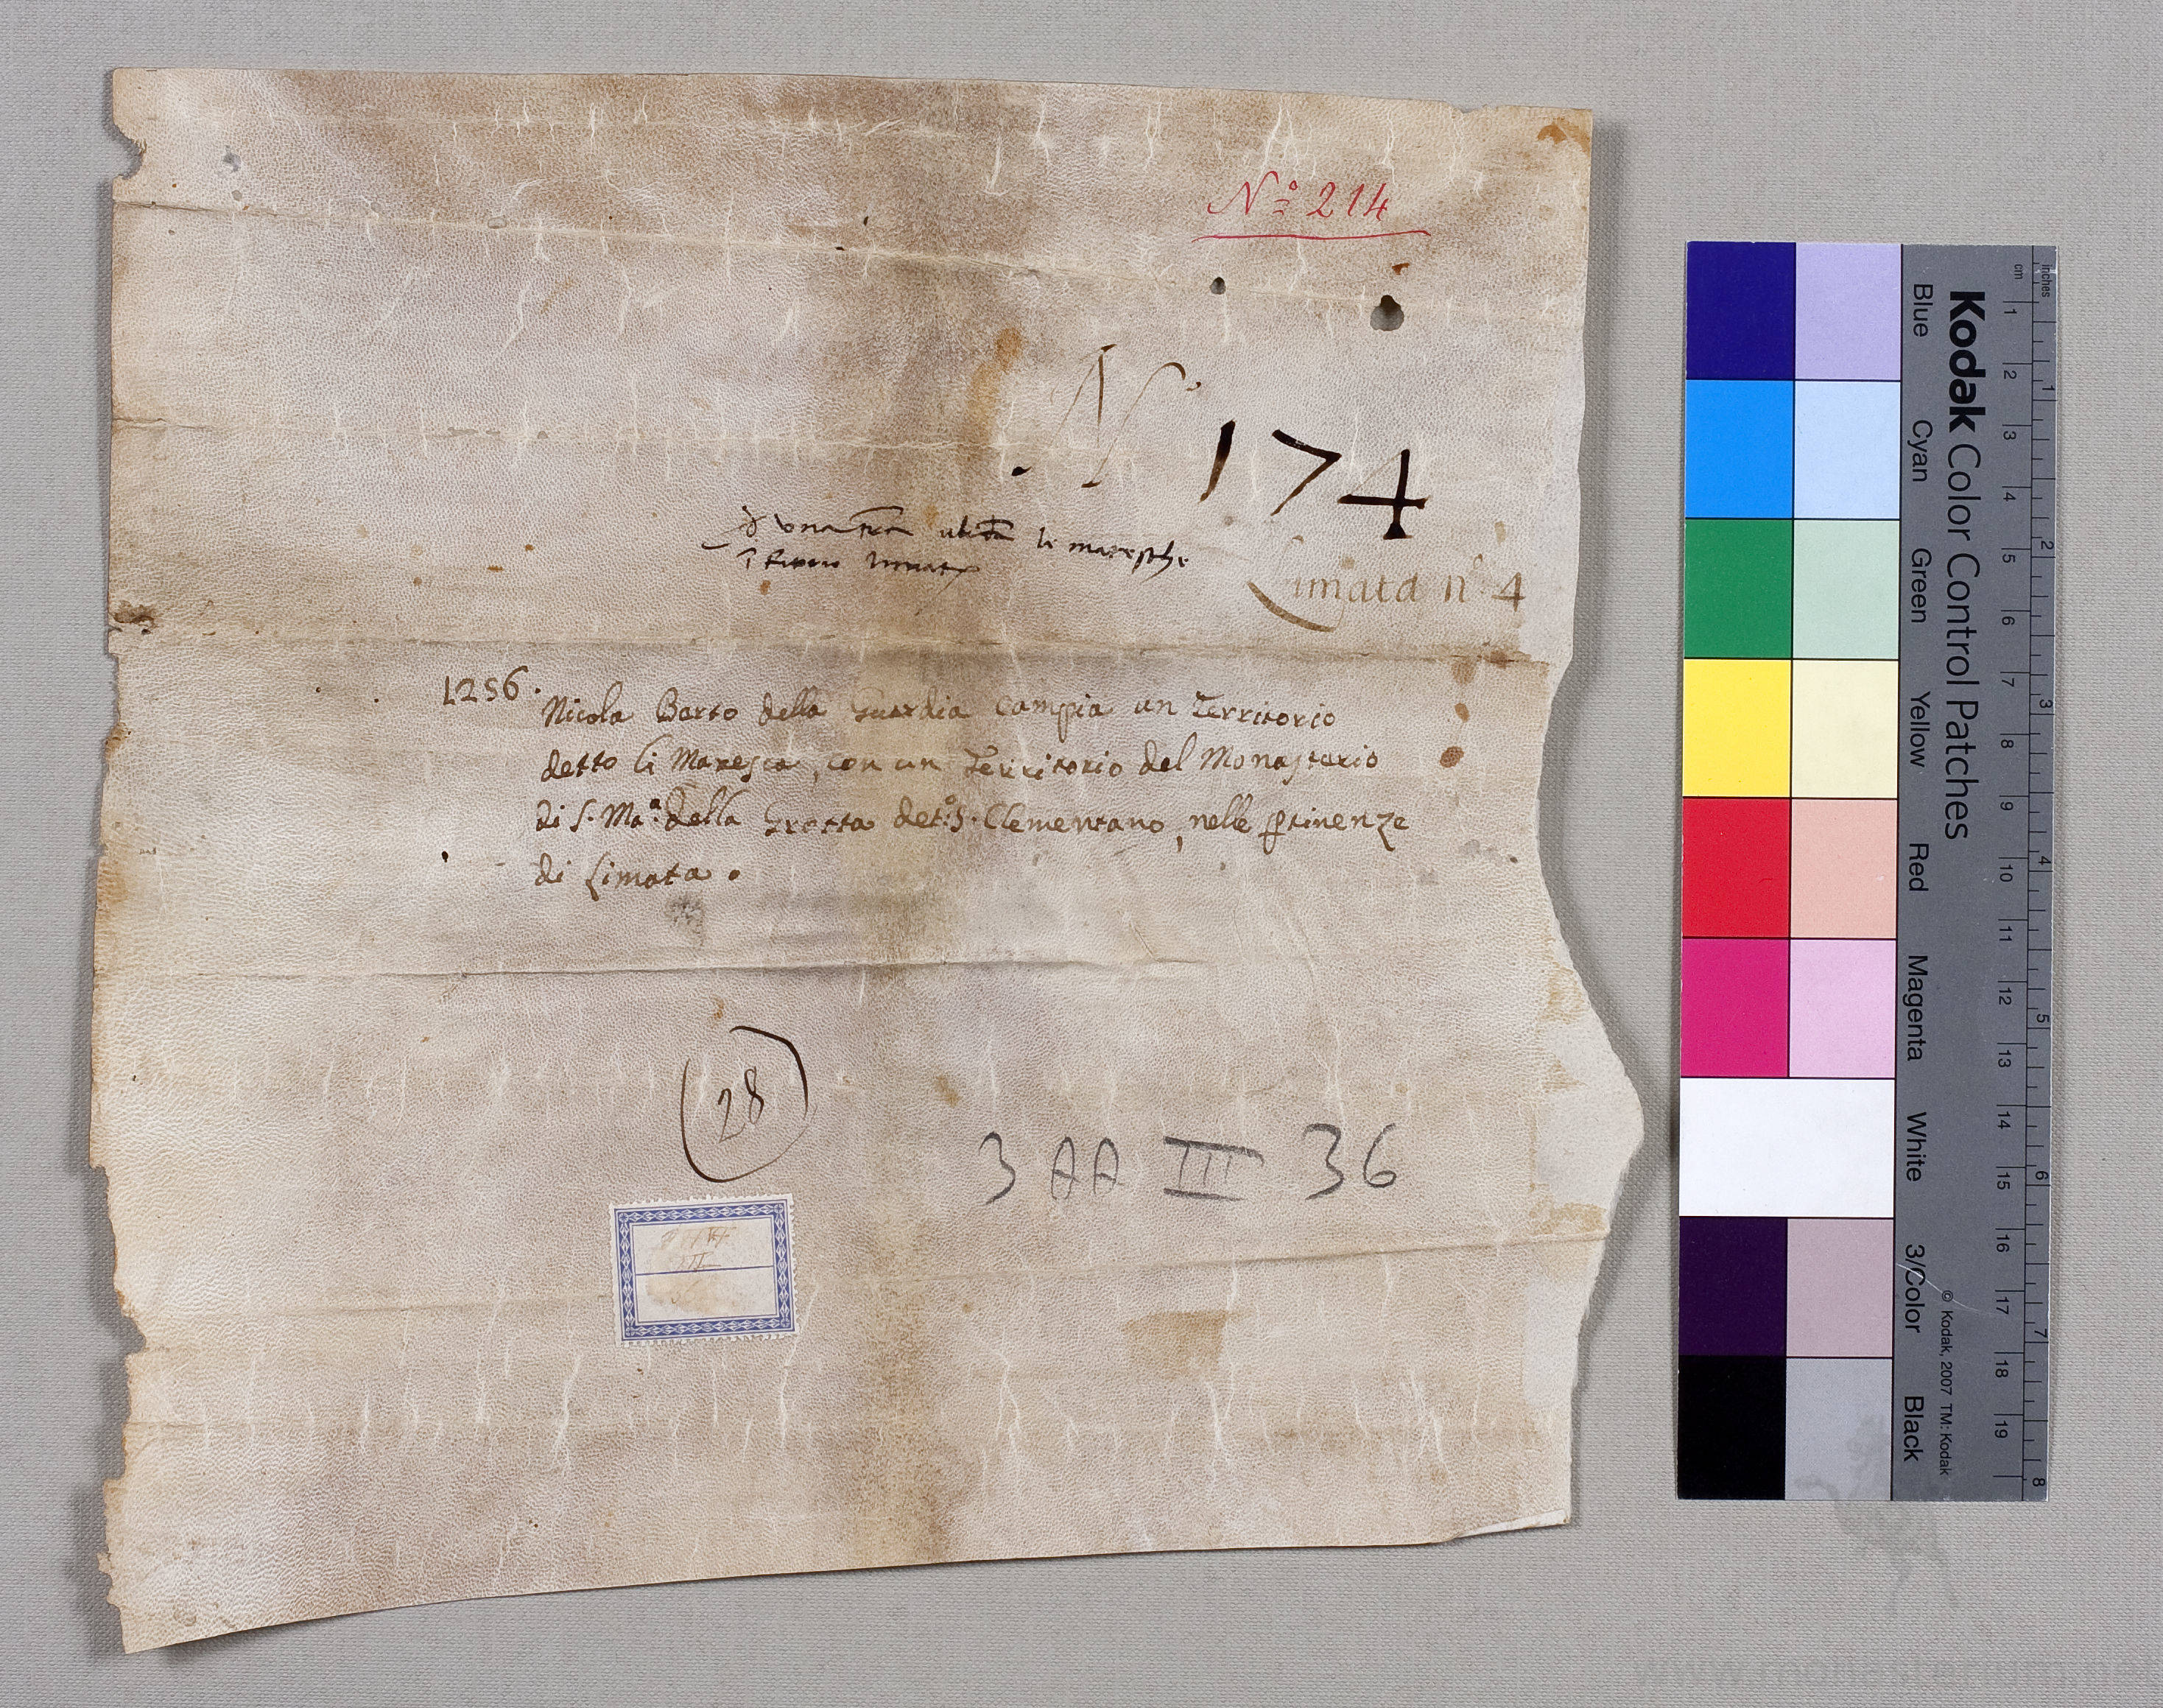 Nº 214
N. 174
de una terra ubi le maresche
Limata nº 4
1256. Nicola Barto della Guardia campia un Territorio
detto li Maresca, con un Territorio del Monasterio
di S. Maª della Grotta detº S. Clementano, nelle ptinenze
di Limata.
(28)
3 AA III 36
Kodak Color Control Patches
Blue Cyan Green Yellow Red Magenta White 3/Color Black
© Kodak, 2007 TM: Kodak
cm 1 2 3 4 5 6 7 8 9 10 11 12 13 14 15 16 17 18 19
inches 1 2 3 4 5 6 7 8
www.monasterium.net